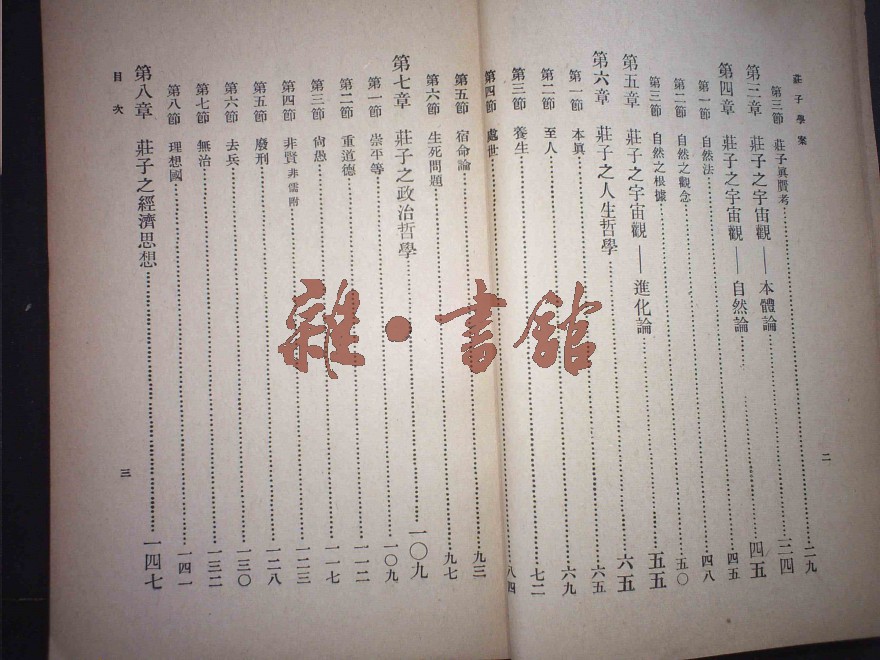 莊子學案
第三節 莊子眞贗考……二九
第三章 莊子之宇宙觀——本體論……三四
第四章 莊子之宇宙觀——自然論……四五
第一節 自然法……四五
第二節 自然之觀念……四八
第三節 自然之根據……五〇
第五章 莊子之宇宙觀——進化論……五五
第六章 莊子之人生哲學……六五
第一節 本眞……六五
第二節 至人……六九
第三節 養生……七二
第四節 處世……八四
二
第五節 宿命論……九三
第六節 生死問題……九七
第七章 莊子之政治哲學……一〇九
第一節 崇平等……一〇九
第二節 重道德……一一二
第三節 尙愚……一一七
第四節 非賢 非儒附……一二三
第五節 廢刑……一二八
第六節 去兵……一三〇
第七節 無治……一三二
第八節 理想國……一四一
第八章 莊子之經濟思想……一四七
目次
三
雜·書館